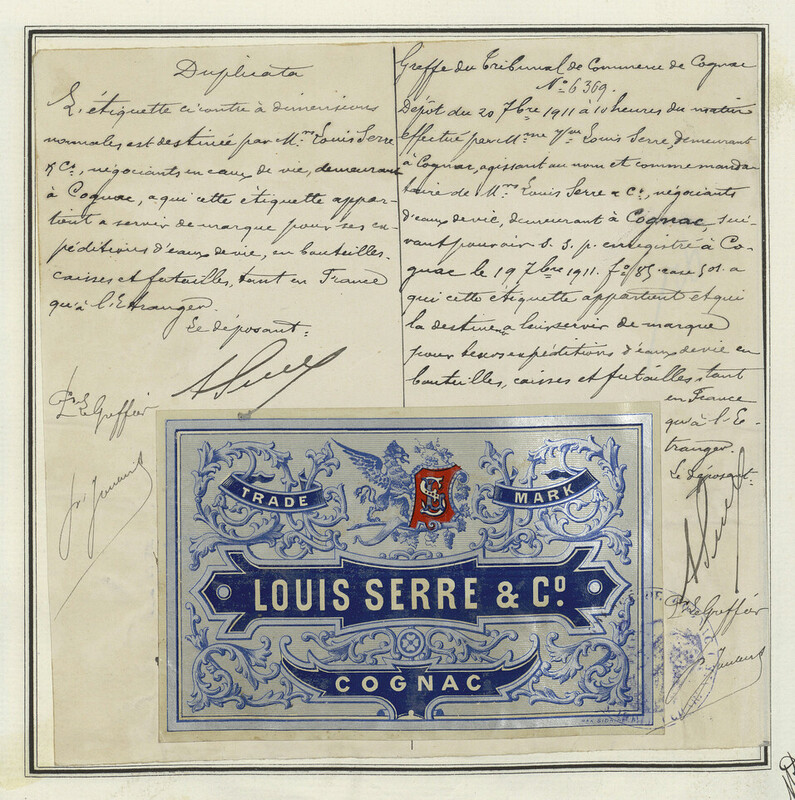 Duplicata
L'étiquette ci contre à dimensions
normales est destinée par Mrs Louis Serre
& Co, négociants en eaux de vie, demeurant
à Cognac, a qui cette étiquette appar-
tient a servir de marque pour ses ex-
péditions d'eaux de vie, en bouteilles,
caisses et futailles, tant en France
qu'à l'Etranger.
Le déposant:
Pr Le Greffier
Greffe du Tribunal de Commerce de Cognac
No 6369.
Dépôt du 20 7bre 1911 à 10 heures du matin
effectué par Mme Vve Louis Serre, demeurant
à Cognac, agissant au nom et comme manda-
taire de Mrs Louis Serre & Co, négociants
d'eaux de vie, demeurant à Cognac, sui-
vant pouvoir s. s. p. enregistré à Co-
gnac le 19 7bre 1911. fo 85 case 501. a
qui cette étiquette appartient et qui
la destine a leur servir de marque
pour leurs expéditions d'eaux de vie en
bouteilles, caisses et futailles, tant
en France
qu'à l'E-
tranger.
Le Déposant.
Pr Le Greffier
TRADE MARK
LS
LOUIS SERRE & Co.
COGNAC